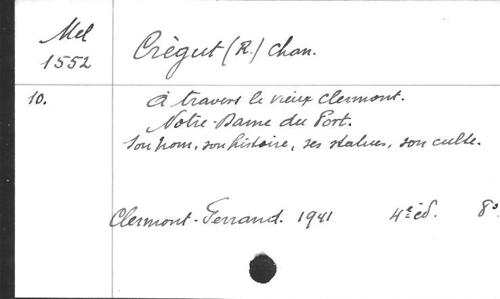 Mel
1552
Crègut (R.) chan.
10.
à travers le vieux Clermont.
Notre-Dame du Port.
Son nom, son histoire, ses statues, son culte.
Clermont-Ferrand. 1941 4e éd. 8°